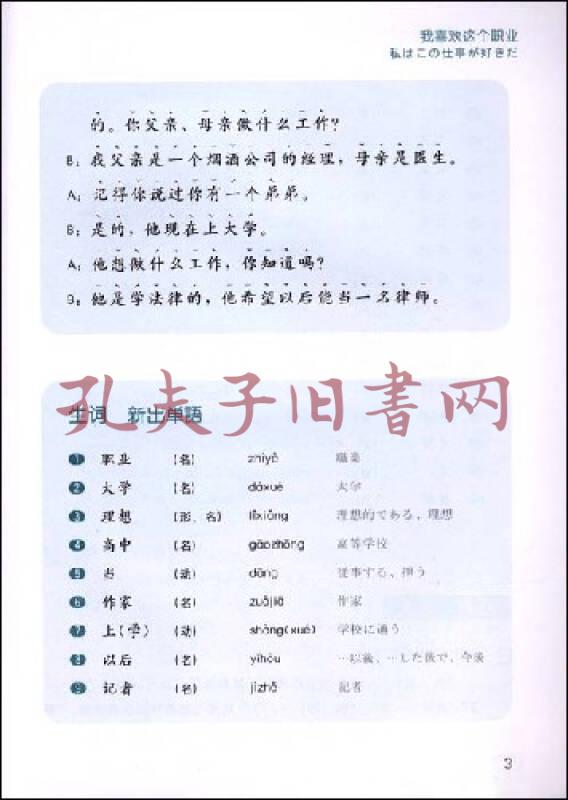 我喜欢这个职业
私はこの仕事が好きだ
的。你父亲、母亲做什么工作?
B: 我父亲是一个烟酒公司的经理，母亲是医生。
A: 记得你说过你有一个弟弟。
B: 是的，他现在上大学。
A: 他想做什么工作，你知道吗?
B: 他是学法律的，他希望以后能当一名律师。
孔夫子旧书网
生词 新出単語
1 职业 (名) zhíyè 職業
2 大学 (名) dàxué 大学
3 理想 (形、名) lǐxiǎng 理想的である、理想
4 高中 (名) gāozhōng 高等学校
5 当 (动) dāng 従事する、担う
6 作家 (名) zuòjiā 作家
7 上(学) (动) shàng(xué) 学校に通う
8 以后 (名) yǐhòu …以後、…した後で、今後
9 记者 (名) jìzhě 記者
3